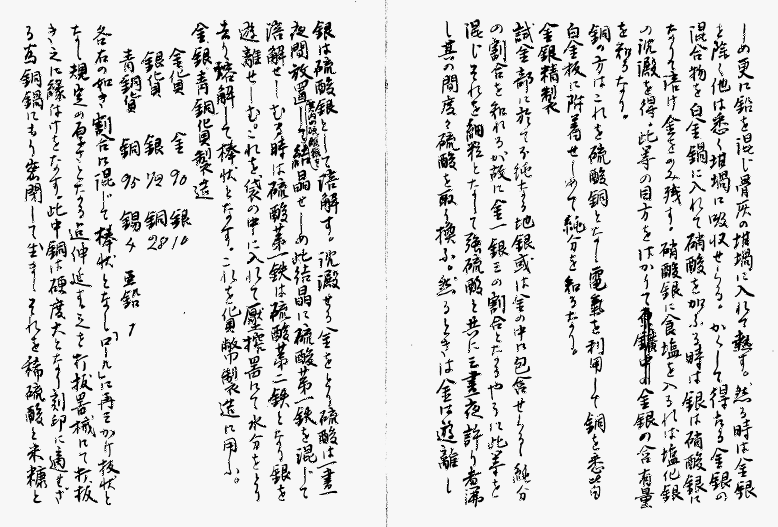 しめ更に鉛を混じ骨灰の坩堝に入れて熱す。然る時は金銀
を除く他は悉く坩堝に吸収せらる。かくして得たる金銀の
混合物を白金鍋に入れて硝酸を加ふる時は銀は硝酸銀に
なりて溶け金をのみ残す。硝酸銀に食塩を入るれば塩化銀
の沈澱を得。此等の目方をはかりて中の金銀の含有量
を知るなり。
銅の方はこれを硫酸銅となし電氣を利用して銅を悉皆
白金板に附着せしめて純分を知るなり。
金銀精製
試金部に於て不純なる地銀或は金の中に包含せらるゝ純分
の割合を知れるが故に金一銀三の割合となるやうに此等を
混じそれを細粒となして強硫酸と共に三晝夜許り煮沸
し其の間度々硫酸を取り換ふ。然るときは金は遊離し
銀は硫酸銀として溶解す。沈澱せる金をとり硫酸は一晝
夜間放置し結晶せしめ此結晶に硫酸第一鉄を混じて
溶解せしむる時は硫酸第一鉄は硫酸第二鉄となり銀を
遊離せしむ。これを袋の中に入れて壓搾器にて水分をとり
去り熔解して棒状となす。これを貨幣製造に用ふ。
金銀青銅貨製造
金貨 金 90 銀 10
銀貨 銀 72 銅 28
青銅貨 銅 95 錫 4 亜鉛 1
各右の如き割合に混じて棒状となし「ロール」に再三かけ板状と
なし規定の厚さとなる迄伸延し之を打板器械にて打抜
き之に縁はけをなす。此中銅は硬度大となり刻印に適せざ
る為銅鍋にもり密閉して生まし それを稀硫酸と米糠と